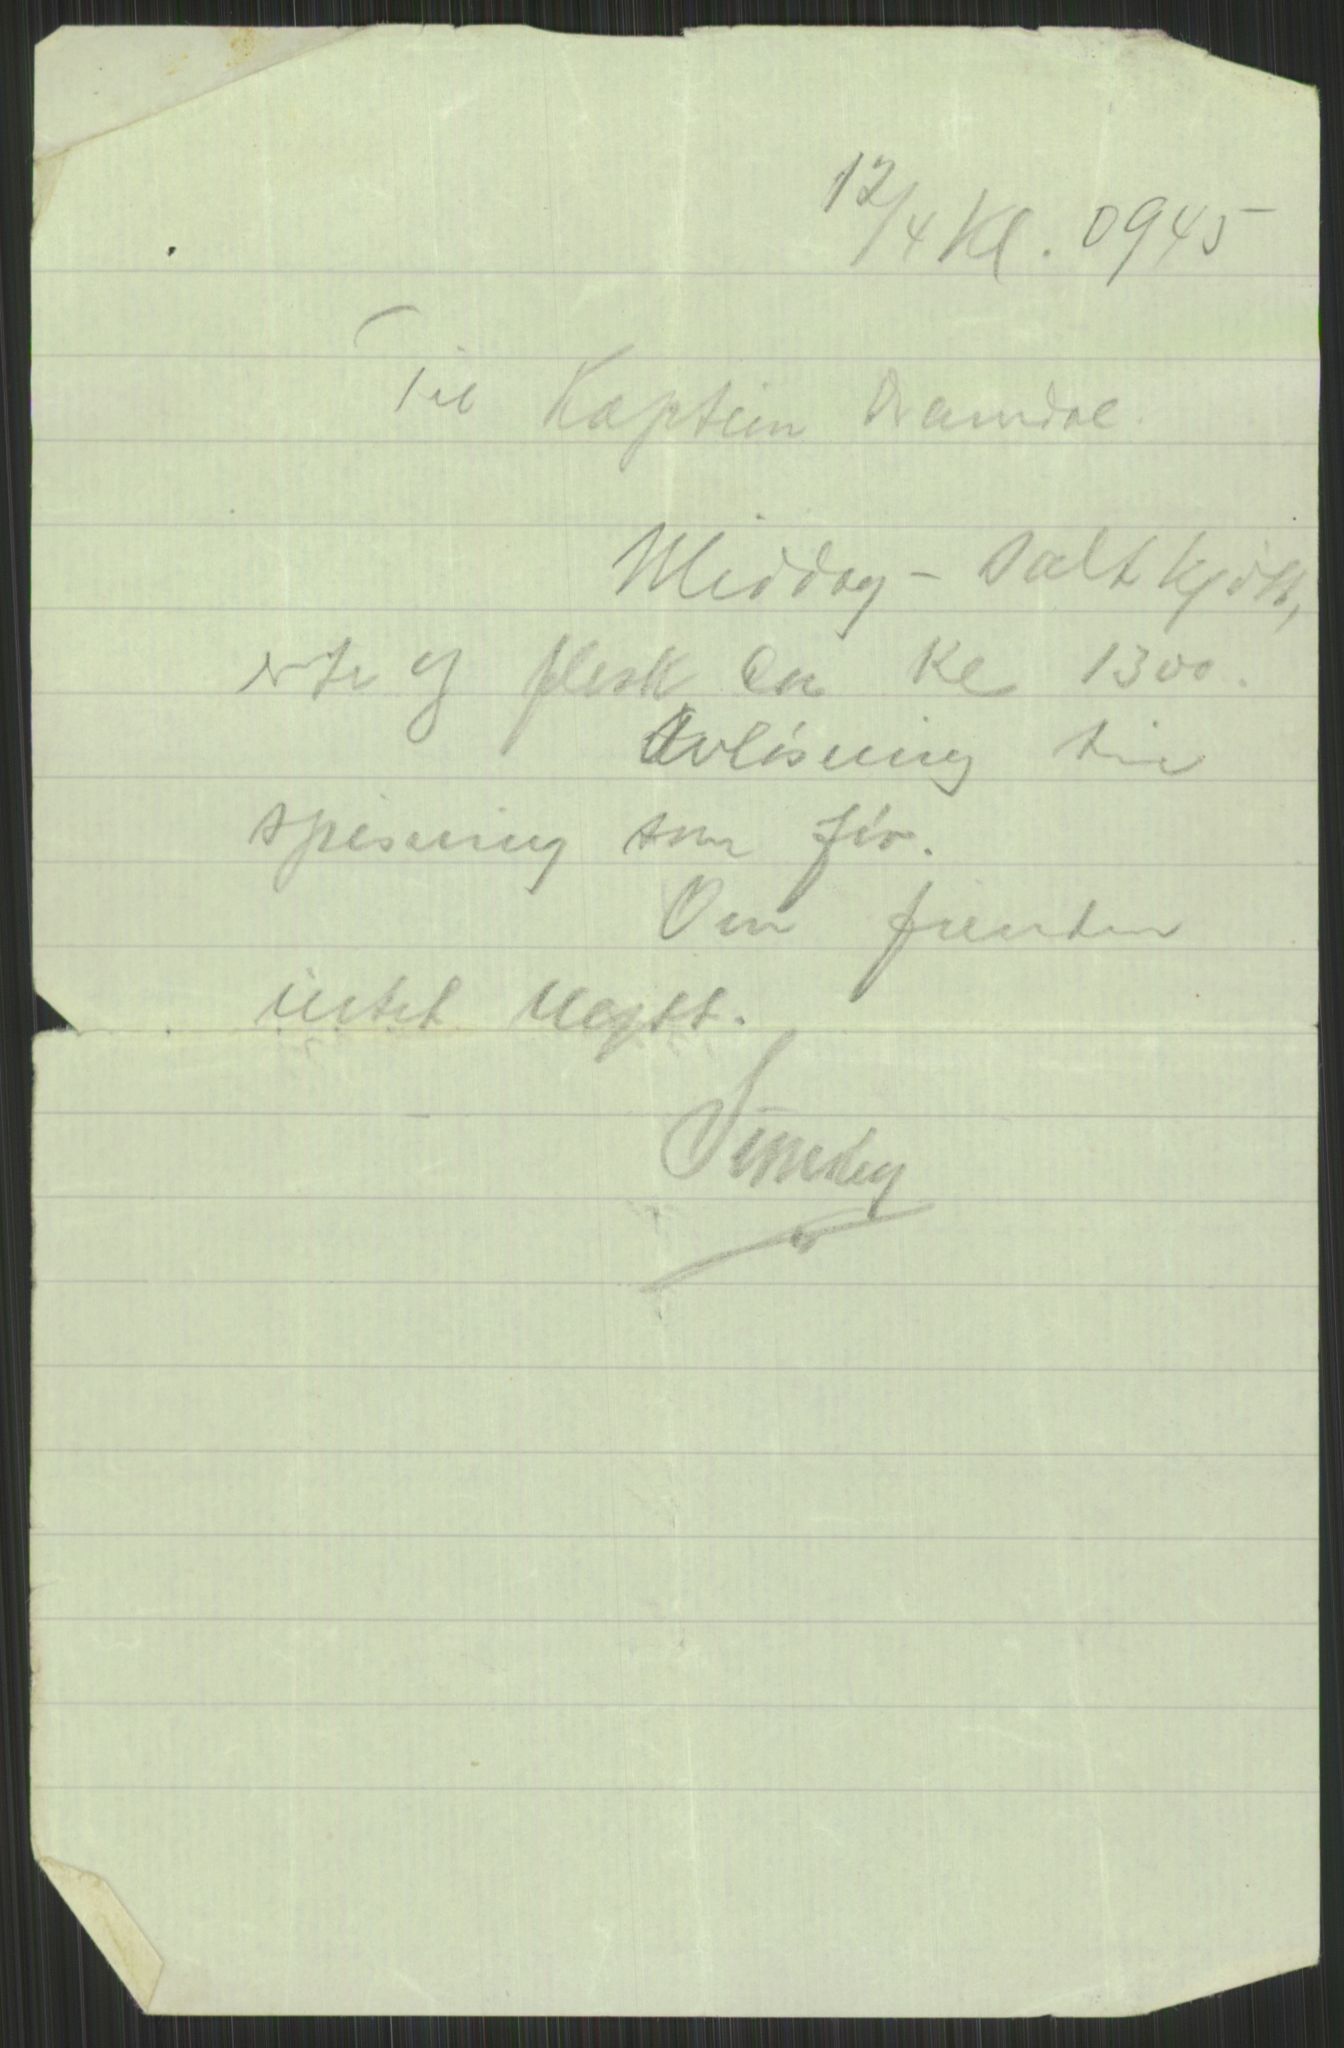 12/4 Kl. 0945
Til Kaptein
Middag - Saltkjött,
erter og flesk ca Kl 1300.
Avlösning til
spisning som för.
Om fienden
intet nytt.